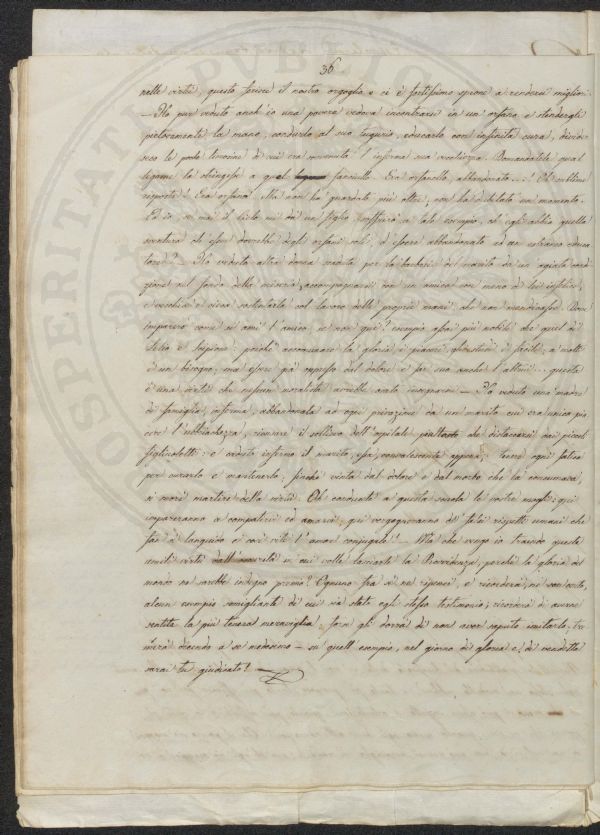 PROSPERITATI PUBLICAE
36
nelle virtù, questo ferisce il nostro orgoglio e ci è fortissimo sprone a renderci migliori
– Ho pur veduto anch'io una povera vedova incontrarsi in un orfano, e stendergli
pietosamente la mano, condurlo al suo tugurio, educarlo con infinita cura, divider
seco le poche limosine di cui era sovvenuta l'inferma sua vecchiezza. Domandatele qual
legame la stringesse a quel fanciullo. Era orfanello, abbandonato... Oh sublime
risposta! Era orfano! Ella non ha guardato più oltre, non ha esitato un momento.
Ed io, se mai il Cielo mi dà un figlio, soffrirò a tale esempio, ch'egli abbia quella
sventura di cui dovrebbe degli orfani soli, d'essere abbandonato ad un estraneo educa
tore? – Ho veduto altra donna caduta per la barbarie del marito da un'agiata condi
zione nel fondo della miseria, accompagnarsi con un'amica non meno di lei infelice,
e vecchia e cieca sostentarla col lavoro delle proprie mani, che non mendicasse. Dove
imparerò come si ami l'amico se non qui? esempio assai più nobile che quel di
Lelio e Scipione: poiché accomunare la gloria i piaceri gli studi è facile, a molti
è un bisogno, ma esser già oppresso dal dolore e far suo anche l'altrui... questa
è una virtù che nessun moralista avrebbe osato insegnarmi – Ho veduto una madre
di famiglia, inferma, abbandonata ad ogni privazione da un marito cui era unica pia
cere l'ubbriachezza, ricusare il sollievo dell'ospitale piuttosto che distaccarsi dai piccoli
figliuoletti: e caduto infermo il marito, essa, convalescente appena, durare ogni fatica
per curarlo e mantenerlo, finché vinta dal dolore e dal morbo che la consumava,
si morì martire della virtù. Oh conducete a questa scuola le vostre mogli: qui
impareranno a compatirvi ed amarvi, qui vergogneranno de' falsi rispetti umani che
fan sì languido e così vile l'amor conjugale! – Ma che vengo io traendo queste
umili virtù dall'oscurità in cui volle lasciarle la Provvidenza, perché la gloria del
mondo ne sarebbe indegno premio? Ognuno fra di sé ripensi, e ricorderà, ne son certo,
alcun esempio somigliante di cui sia stato egli stesso testimonio; ricorderà di averne
sentita la più tenera meraviglia, forse gli dorrà di non aver saputo imitarlo, tre
merà dicendo a se medesimo – su quell'esempio, nel giorno di gloria e di vendetta
sarai tu giudicato! –